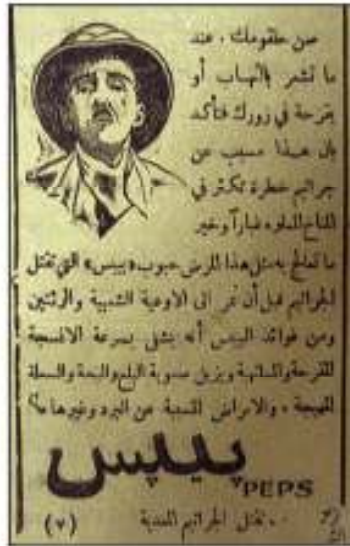 صن حلقومك . عند
ما تشعر بالتهاب أو
بقرحة في زورك فتأكد
بان هذا مسبب عن
جراثيم خطرة تكثر في
المناخ المملوء غباراً وخير
ما تعالج به مثل هذا المرض حبوب «پيپس» التي تقتل
الجراثيم قبل أن تمر الى الاوعية الشعبية والرئتين
ومن فوائد البيبس أنه يشفي بسرعة الانسجة
المقرحة والملتهبة ويزيل صعوبة البلع والبحة والسعلة
المهيجة ، والامراض المسببة عن البرد وغيرها
پيپس
PEPS
تقتل الجراثيم المعدية
(٧)